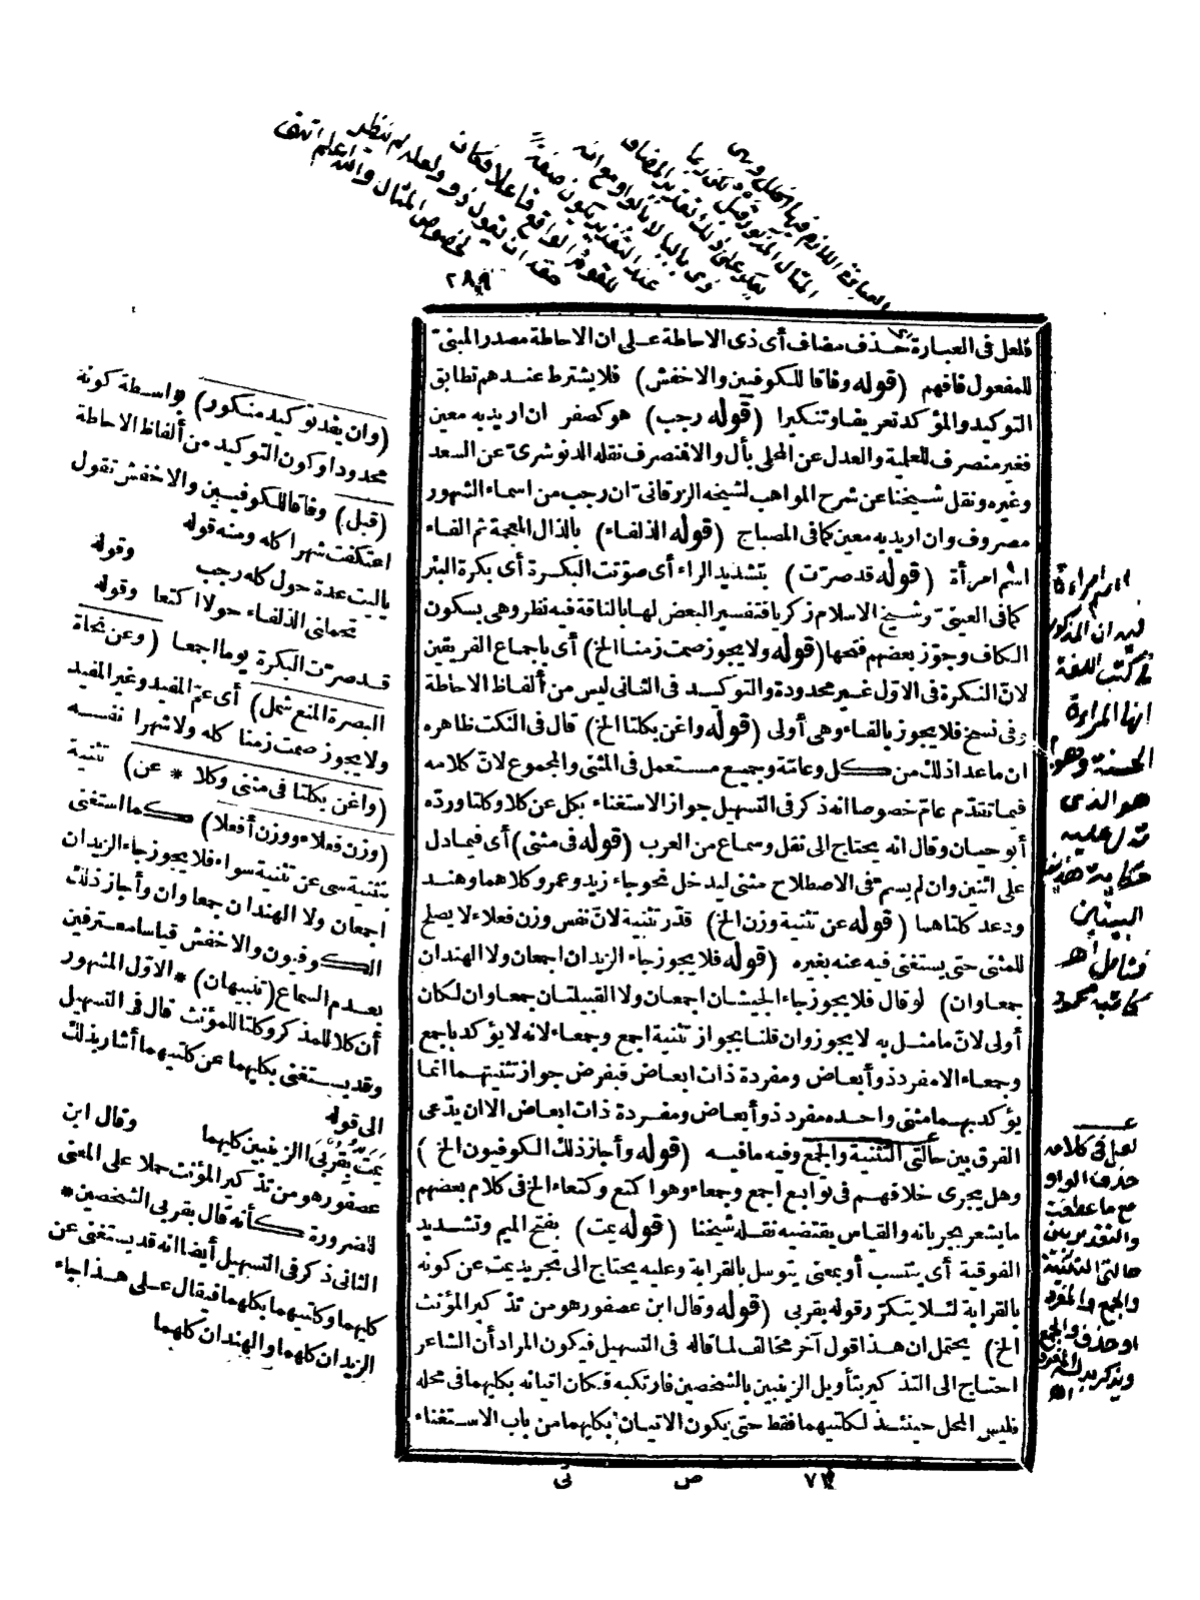 ٢٨٩
فلعل فى العبارة حذف مضاف أى ذى الاحاطة على ان الاحاطة مصدر المبنى
للمفعول فافهم (قوله وفاقا للكوفيين والاخفش) فلا يشترط عندهم تطابق
التوكيد والمؤكد تعريفا وتنكيرا (قوله رجب) هو كصفر ان اريد به معين
فغير منصرف للعلمية والعدل عن المحلى بأل والا فنصرف نقله الدنوشرى عن السعد
وغيره ونقل شيخنا عن شرح المواهب لشيخه الزرقانى ان رجب من اسماء الشهور
مصروف وان اريد به معين كما فى المصباح (قوله الذلفاء) بالذال المعجمة ثم الفاء
اسم امرأة (قوله قد صرت) بتشديد الراء أى صوتت البكرة أى بكرة البئر
كما فى العينى وشيخ الاسلام زكريا فتفسير البعض لها بالناقة فيه نظر وهى بسكون
الكاف وجوز بعضهم فتحها (قوله ولا يجوز صمت زمنا الخ) أى باجماع الفريقين
لان النكرة فى الاول غير محدودة والتوكيد فى الثانى ليس من ألفاظ الاحاطة
وفى نسخ فلا يجوز بالفاء وهى أولى (قوله واغن بكلتا الخ) قال فى النكت ظاهره
ان ماعدا ذلك من كل وعامة وجميع مستعمل فى المثنى والمجموع لان كلامه
فيما تقدم عام خصوصا انه ذكر فى التسهيل جواز الاستغناء بكل عن كلا وكلتا ورده
أبو حيان وقال انه يحتاج الى نقل وسماع من العرب (قوله فى مثنى) أى فيما دل
على اثنين وان لم يسم فى الاصطلاح مثنى ليدخل نحو جاء زيد وعمرو كلاهما وهند
ودعد كلتاهما (قوله عن تثنية وزن الخ) قدر تثنية لان نفس وزن فعلاء لا يصلح
للمثنى حتى يستغنى فيه عنه بغيره (قوله فلا يجوز جاء الزيدان اجمعان ولا الهندان
جمعاوان) لو قال فلا يجوز جاء الجيشان اجمعان ولا القبيلتان جمعاوان لكان
أولى لان ما مثل به لا يجوز وان قلنا بجواز تثنية اجمع وجمعاء لانه لا يؤكد باجمع
وجمعاء الا مفرد ذو أبعاض ومفردة ذات ابعاض فبفرض جواز تثنيتهما انما
يؤكد بهما مثنى واحده مفرد ذو أبعاض ومفردة ذات ابعاض الا ان يدعى
الفرق بين حالتى التثنية والجمع وفيه ما فيه (قوله وأجاز ذلك الكوفيون الخ)
وهل يجرى خلافهم فى توابع اجمع وجمعاء وهو اكتع وكتعاء الخ فى كلام بعضهم
ما يشعر بجريانه والقياس يقتضيه نقله شيخنا (قوله يمت) بفتح الميم وتشديد
الفوقية أى ينتسب أو بمعنى يتوسل بالقرابة وعليه يحتاج الى تجريد يمت عن كونه
بالقرابة لئلا يتكرر وقوله بقربى (قوله وقال ابن عصفور هو من تذكير المؤنث
الخ) يحتمل ان هذا قول آخر مخالف لما قاله فى التسهيل فيكون المراد أن الشاعر
احتاج الى التذكير بتأويل الزينبين بالشخصين فارتكبه فكان اتيانه بكليهما فى محله
فليس المحل حينئذ لكلتيهما فقط حتى يكون الاتيان بكليهما من باب الاستغناء
٧٣ ص نى
(وان يفد توكيد منكور) بواسطة كونه
محدودا وكون التوكيد من ألفاظ الاحاطة
(قبل) وفاقا للكوفيين والاخفش تقول
اعتكفت شهرا كله ومنه قوله
ياليت عدة حول كله رجب وقوله
تحملنى الذلفاء حولا اكتعا وقوله
قد صرت البكرة يوما اجمعا (وعن نحاة
البصرة المنع شمل) أى عم المفيد وغير المفيد
ولا يجوز صمت زمنا كله ولا شهرا نفسه
(واغن بكلتا فى مثنى وكلا * عن) تثنية
(وزن فعلاء ووزن أفعلا) كما استغنى
بتثنية سى عن تثنية سواء فلا يجوز جاء الزيدان
اجمعان ولا الهندان جمعاوان وأجاز ذلك
الكوفيون والاخفش قياسا معترفين
بعدم السماع (تنبيهان) * الاول المشهور
أن كلا للمذكر وكلتا للمؤنث قال فى التسهيل
وقد يستغنى بكليهما عن كلتيهما أشار بذلك
الى قوله
يمت بقربى الزينبين كليهما وقال ابن
عصفور هو من تذكير المؤنث حملا على المعنى
للضرورة كأنه قال بقربى الشخصين *
الثانى ذكر فى التسهيل أيضا انه قد يستغنى عن
كليهما وكلتيهما بكلهما فيقال على هذا جاء
الزيدان كلهما والهندان كلهما
اسم امراة
فيه ان المذكور
فى كتب اللغة
انها المراة
الحسنة وهو
هو الذى
دل عليه
البيتين
فتامل اهـ
كاتبه محمود
لعل فى كلامه
حذف الواو
مع ما عطفت
والتقدير بين
حالتى التثنية
والجمع والمفرد